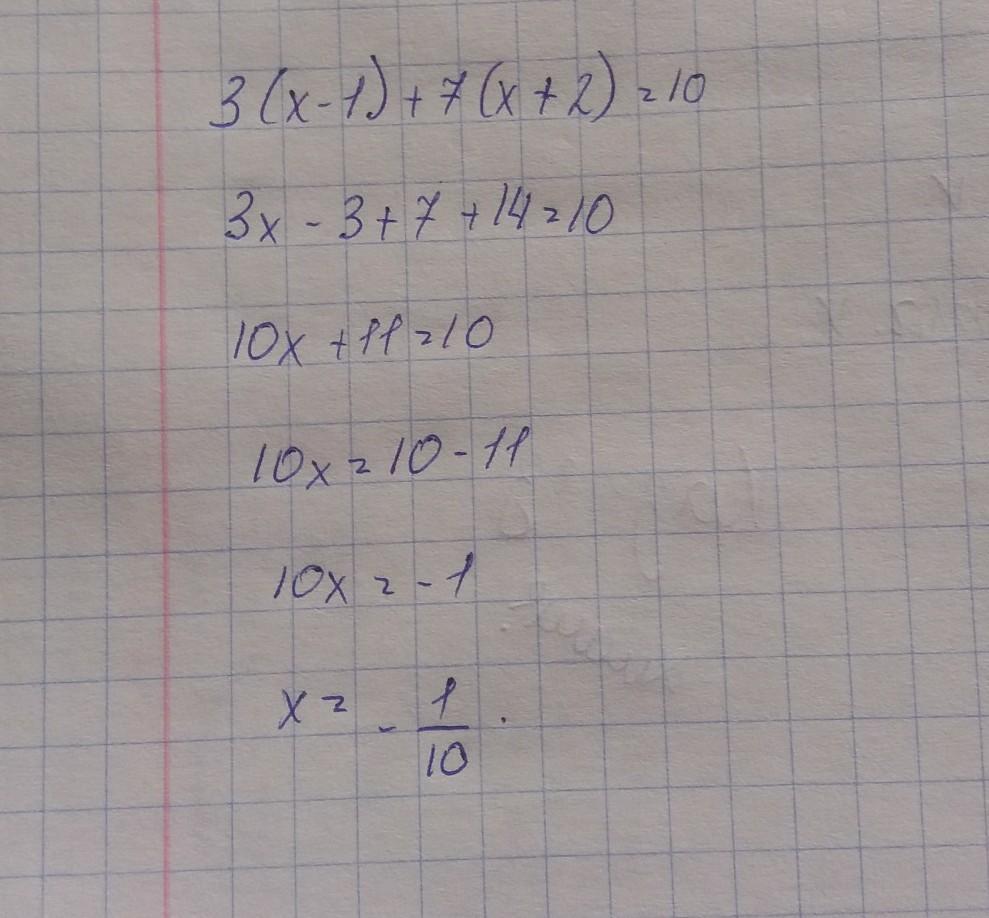 3(x-1)+7(x+2)=10
3x-3+7+14=10
10x+11=10
10x=10-11
10x=-1
x=-1/10.